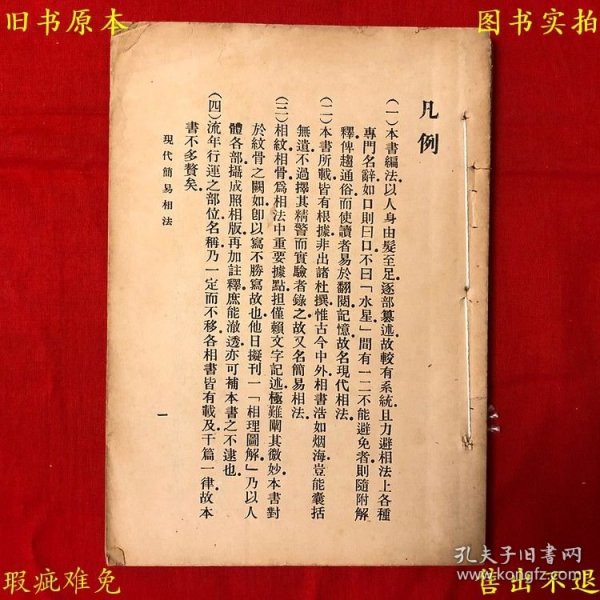 旧书原本
图书实拍
凡例
（一）本書編法以人身由髮至足逐部纂述故較有系統且力避相法上各種
專門名辭如口則曰口不曰「水星」間有一二不能避免者則隨附解
釋俾趨通俗而使讀者易於翻閱記憶故名現代相法
（二）本書所載皆有根據非出諸杜撰惟古今中外相書浩如烟海豈能囊括
無遺不過擇其精警而實驗者錄之故又名簡易相法
（三）相紋相骨爲相法中重要據點担僅賴文字記述極難闡其微妙本書對
於紋骨之闕如卽以寫不勝寫故也他日擬刊一「相理圖解」乃以人
體各部攝成照相版再加註釋庶能澈透亦可補本書之不逮也
（四）流年行運之部位名稱乃一定而不移各相書皆有載及千篇一律故本
書不多贅矣
現代簡易相法
一
孔夫子旧书网
www.kongfz.com
瑕疵难免
售出不退